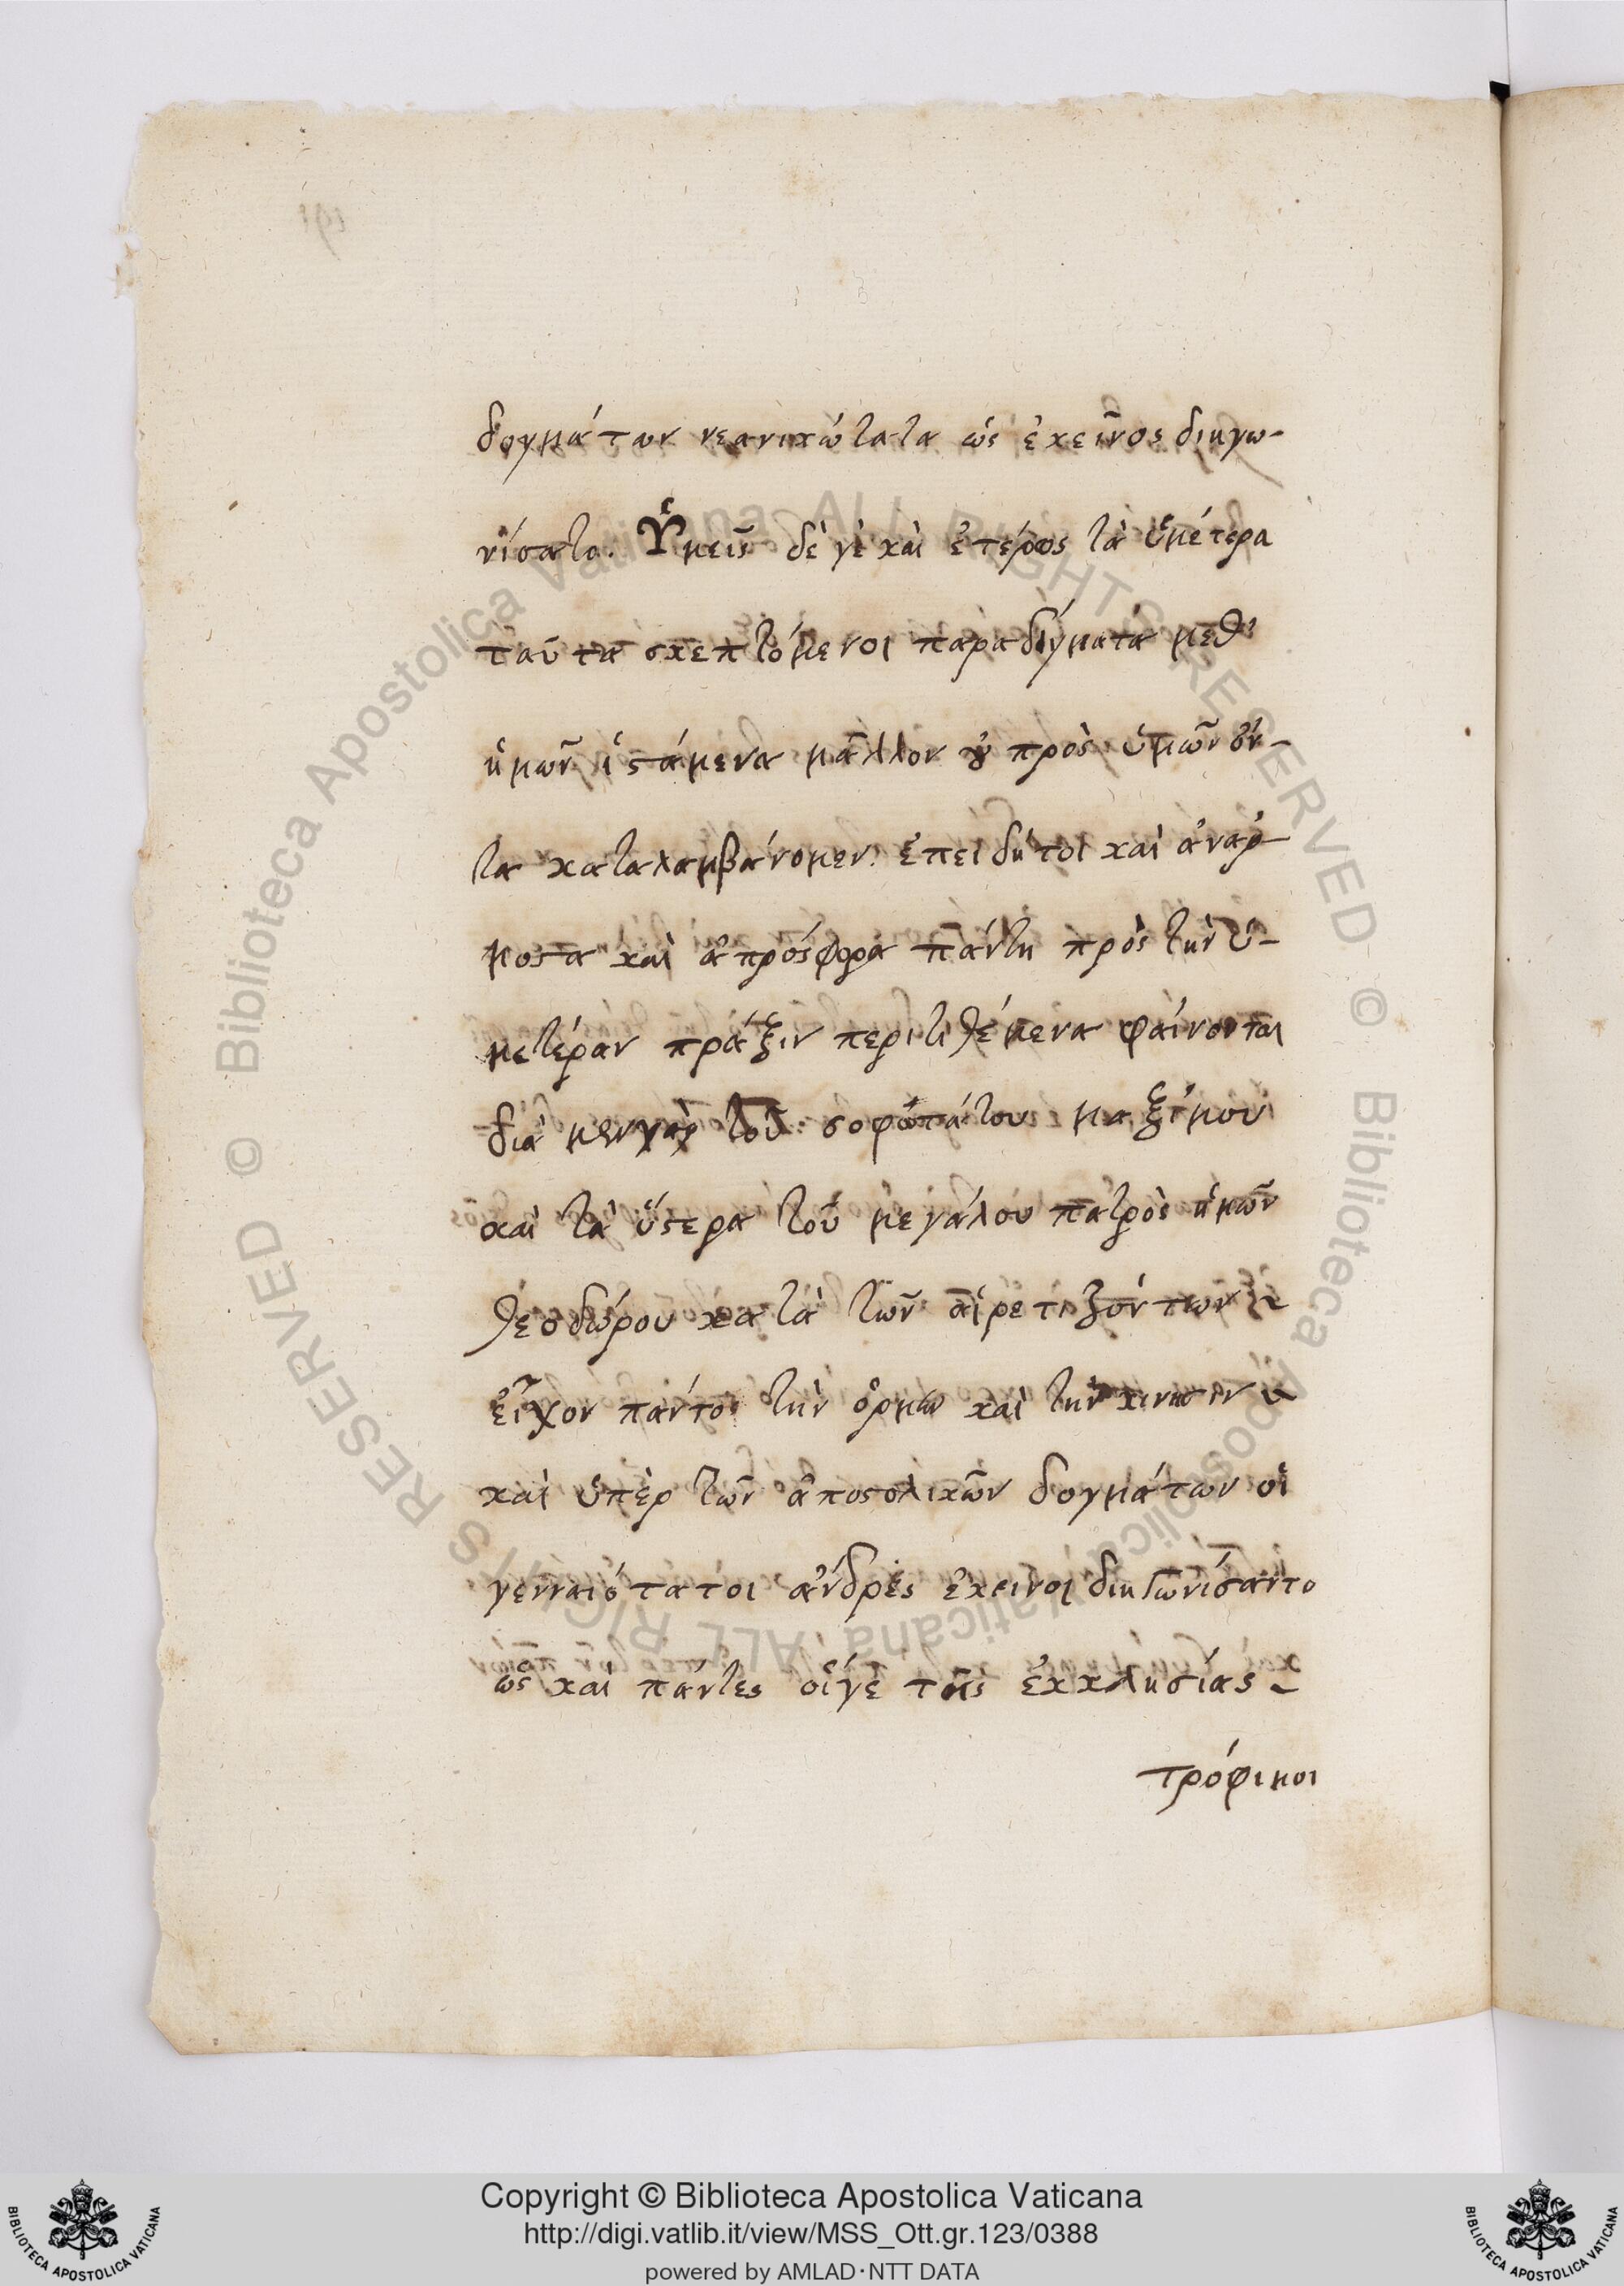 δογμάτων νεανικώτατα ὡς ἐκεῖνος διηγω-
νίσατο. Ὑμεῖς δὲ γὲ καὶ ἑτέρως τὰ ὑμέτερα
ταῦτα σκεπτόμενοι παραδίγματα μεθ'
ἡμῶν ἱστάμενα μᾶλλον ἢ πρὸς ὑμῶν ὄν-
τα καταλαμβάνομεν. ἐπειδήτοι καὶ ἀναρ-
μοστα καὶ ἀπρόσφορα πάντη πρὸς τὴν ὑ-
μετέραν πράξιν περιτιθέμενα φαίνονται
διὰ μενγαρ τοῦ σοφωτάτου μαξίμου
καὶ τὰ ὕστερα τοῦ μεγάλου πατρὸς ἡμῶν
θεοδώρου κατὰ τῶν αἱρετιζόντων
εἶχον πάντος τὴν ὁρμὴν καὶ τὴν κινησιν
καὶ ὑπὲρ τῶν ἀποστολικῶν δογμάτων οἱ
γενναιότατοι ἄνδρες ἐκεινοι διηγωνίσαντο
ὡς καὶ πάντες οἵγε τῆς ἐκκλησίας
τρόφιμοι
Copyright © Biblioteca Apostolica Vaticana
http://digi.vatlib.it/view/MSS_Ott.gr.123/0388
powered by AMLAD·NTT DATA